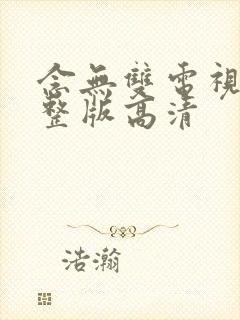 念無雙電視
整版高清
浩瀚